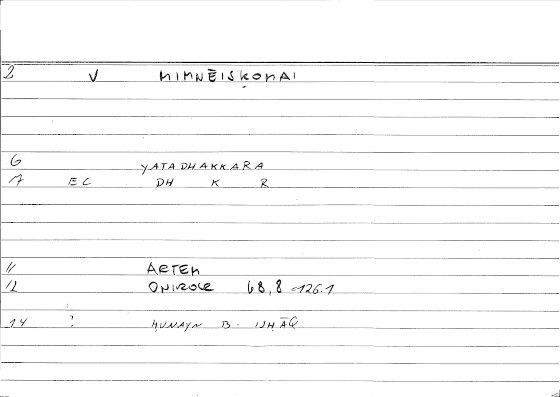 2 V MIMNĒISKOMAI
6 YATADHAKKARA
7 EC DH K R
11 ARTEM
12 ONIROCR 68,8 =126.1
14 : ḤUNAYN B. ISḤĀQ